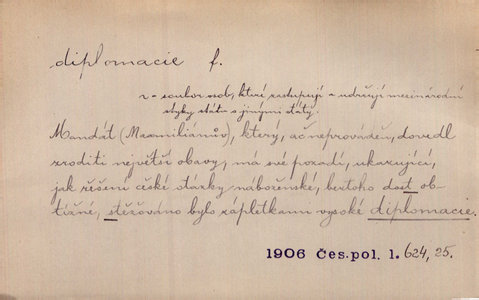 diplomacie f.
2 = soubor osob, které zastupují a udržují mezinárodní
styky státu s jinými státy.
Mandát (Maxmiliánův), který, ač neprováděn, dovedl
zroditi největší obavy, má své pozadí, ukazující,
jak řešení české otázky náboženské, beztoho dost ob-
tížné, stěžováno bylo zápletkami vysoké diplomacie.
1906 Čes. pol. 1. 624, 25.